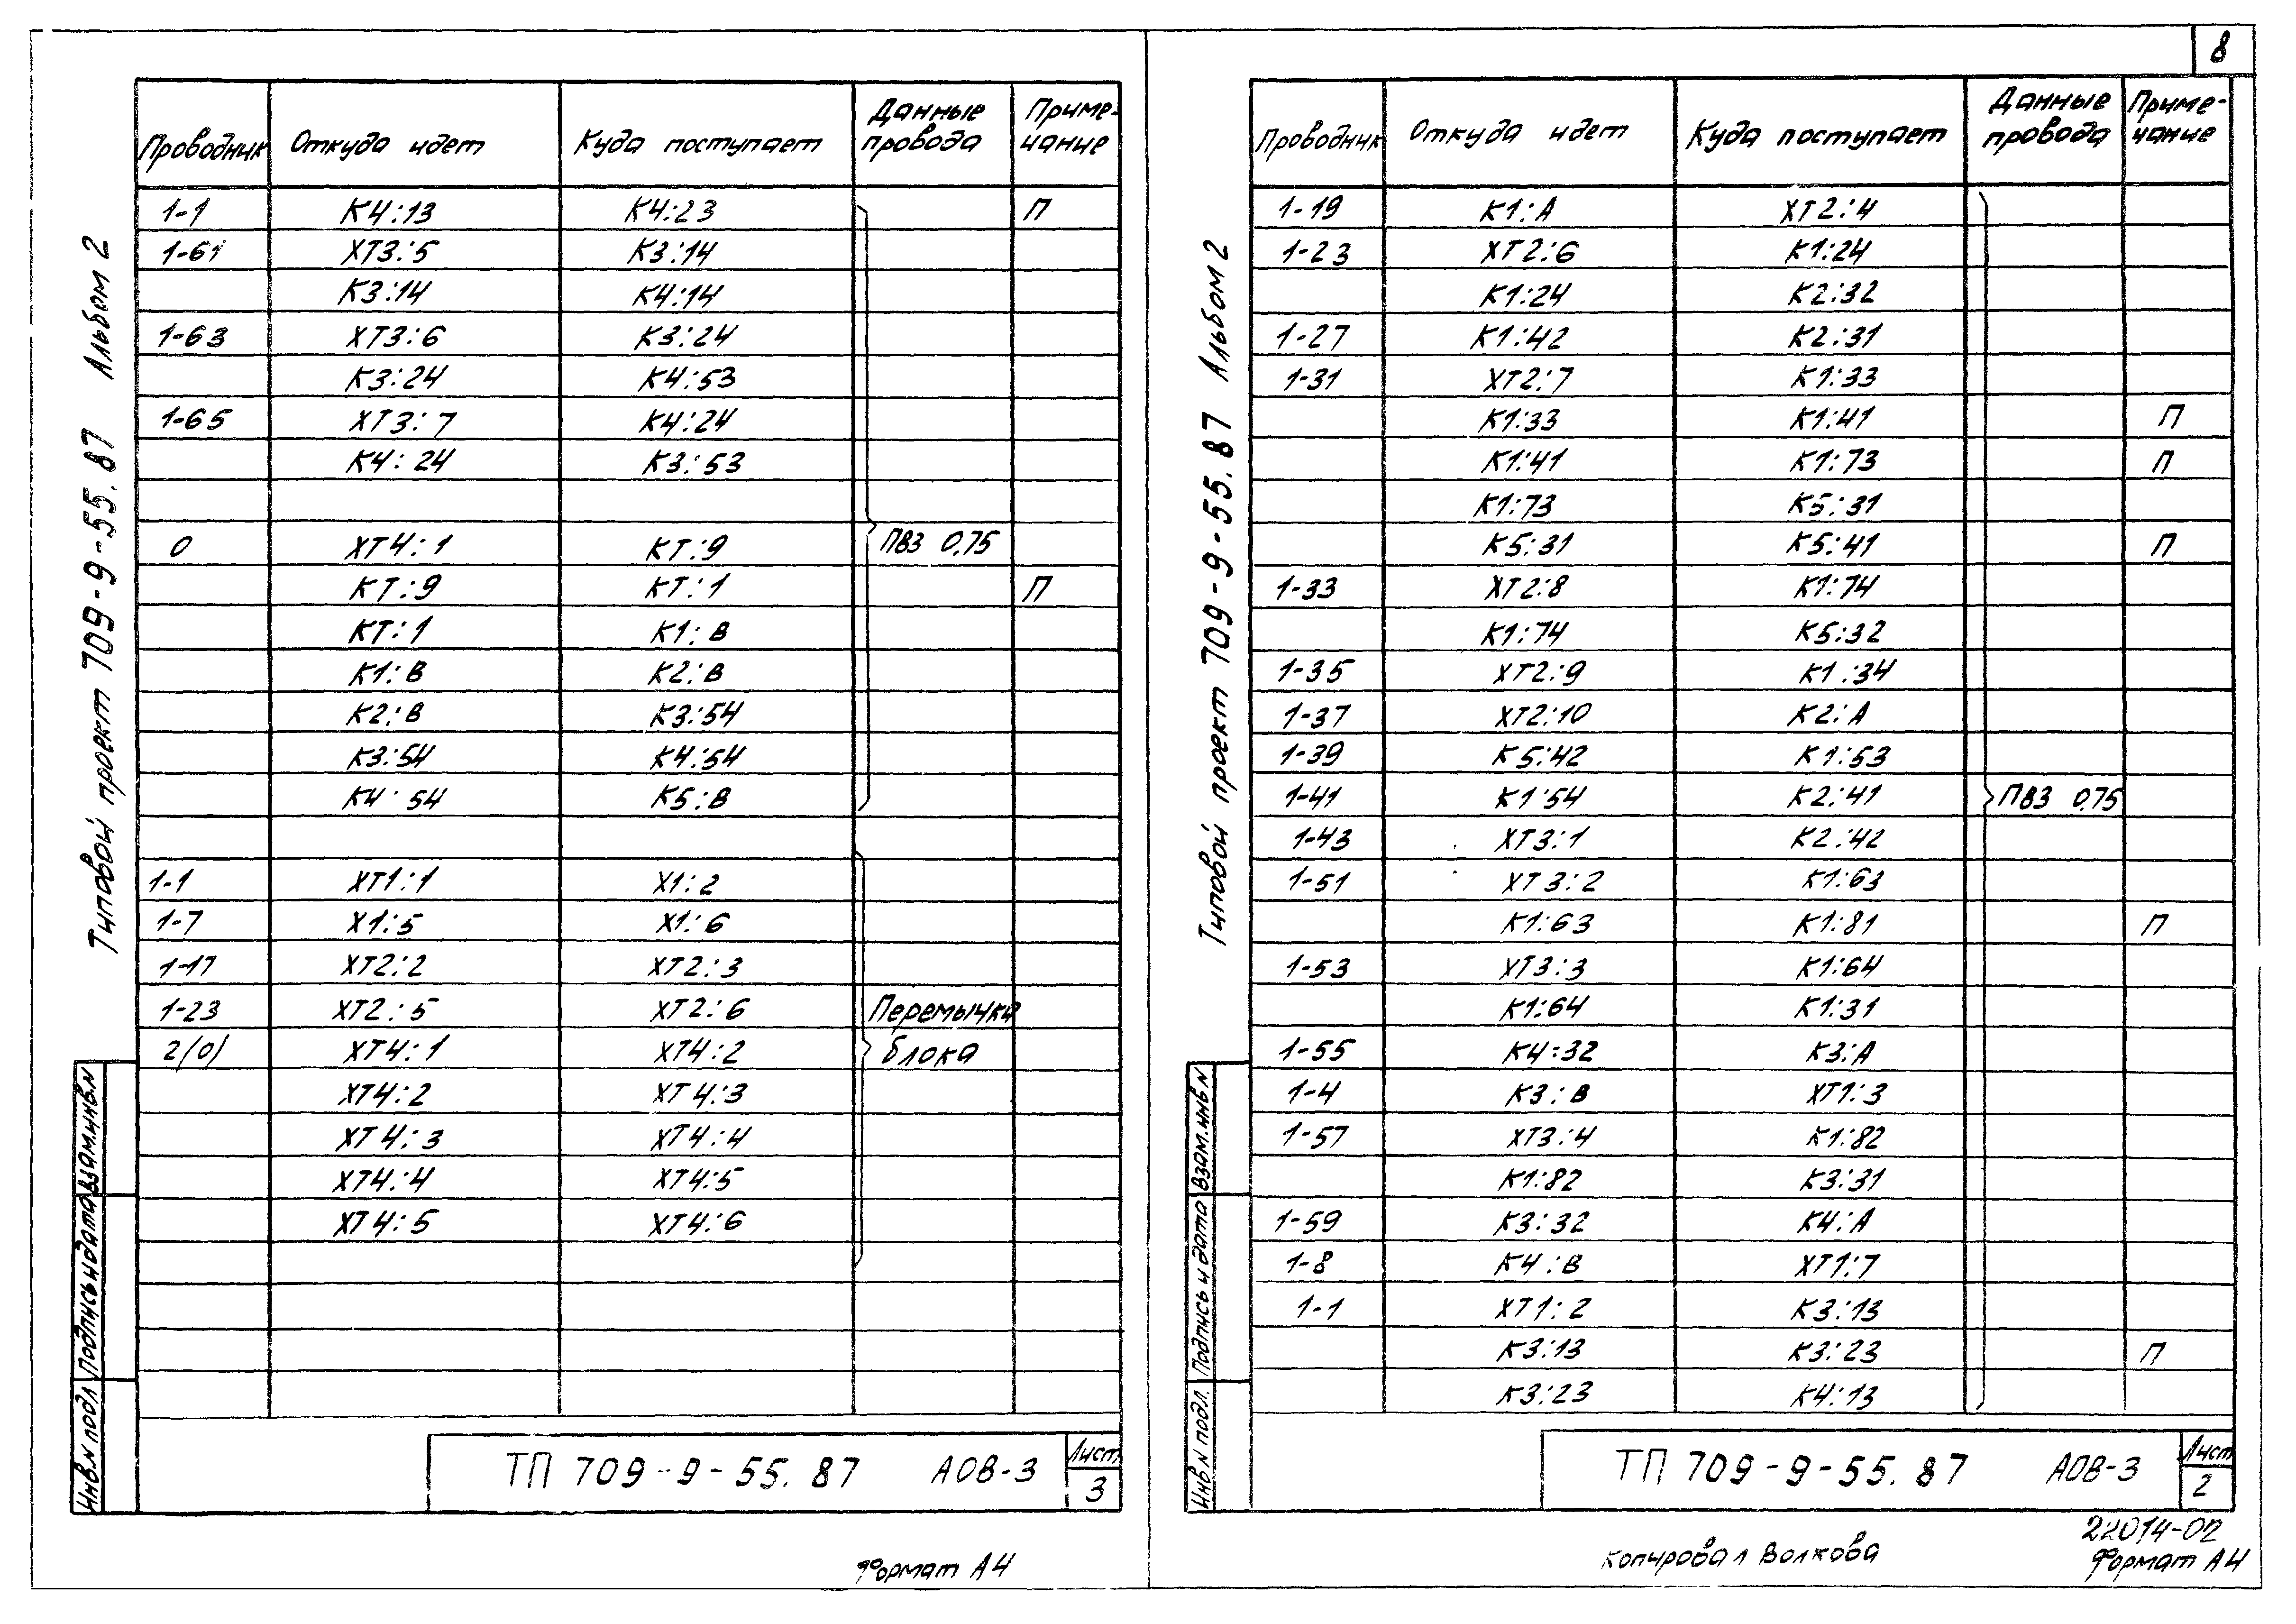 8
Типовой проект 709-9-55.87 Альбом 2
Проводник Откуда идет Куда поступает Данные провода Приме-чание
1-1 К4:13 К4:23 П
1-61 ХТ3:5 К3:14
К3:14 К4:14
1-63 ХТ3:6 К3:24
К3:24 К4:53
1-65 ХТ3:7 К4:24
К4:24 К3:53
0 ХТ4:1 КТ:9 ПВ3 0,75
КТ:9 КТ:1 П
КТ:1 К1:В
К1:В К2:В
К2:В К3:54
К3:54 К4:54
К4:54 К5:В
1-1 ХТ1:1 Х1:2
1-7 Х1:5 Х1:6
1-17 ХТ2:2 ХТ2:3
1-23 ХТ2:5 ХТ2:6 Перемычки
2/0/ ХТ4:1 ХТ4:2 блока
ХТ4:2 ХТ4:3
ХТ4:3 ХТ4:4
ХТ4:4 ХТ4:5
ХТ4:5 ХТ4:6
Инв.N подл Подпись и дата Взам.инв.N
ТП 709-9-55.87 АОВ-3 Лист 3
Формат А4
Типовой проект 709-9-55.87 Альбом 2
Проводник Откуда идет Куда поступает Данные провода Приме-чание
1-19 К1:А ХТ2:4
1-23 ХТ2:6 К1:24
К1:24 К2:32
1-27 К1:42 К2:31
1-31 ХТ2:7 К1:33
К1:33 К1:41 П
К1:41 К1:73 П
К1:73 К5:31
К5:31 К5:41 П
1-33 ХТ2:8 К1:74
К1:74 К5:32
1-35 ХТ2:9 К1:34
1-37 ХТ2:10 К2:А
1-39 К5:42 К1:53
1-41 К1:54 К2:41 ПВ3 0,75
1-43 ХТ3:1 К2:42
1-51 ХТ3:2 К1:63
К1:63 К1:81 П
1-53 ХТ3:3 К1:64
К1:64 К1:31
1-55 К4:32 К3:А
1-4 К3:В ХТ1:3
1-57 ХТ3:4 К1:82
К1:82 К3:31
1-59 К3:32 К4:А
1-8 К4:В ХТ1:7
1-1 ХТ1:2 К3:13
К3:13 К3:23 П
К3:23 К4:13
Инв.N подл. Подпись и дата Взам.инв.N
ТП 709-9-55.87 АОВ-3 Лист 2
22014-02
Копировал Волкова Формат А4